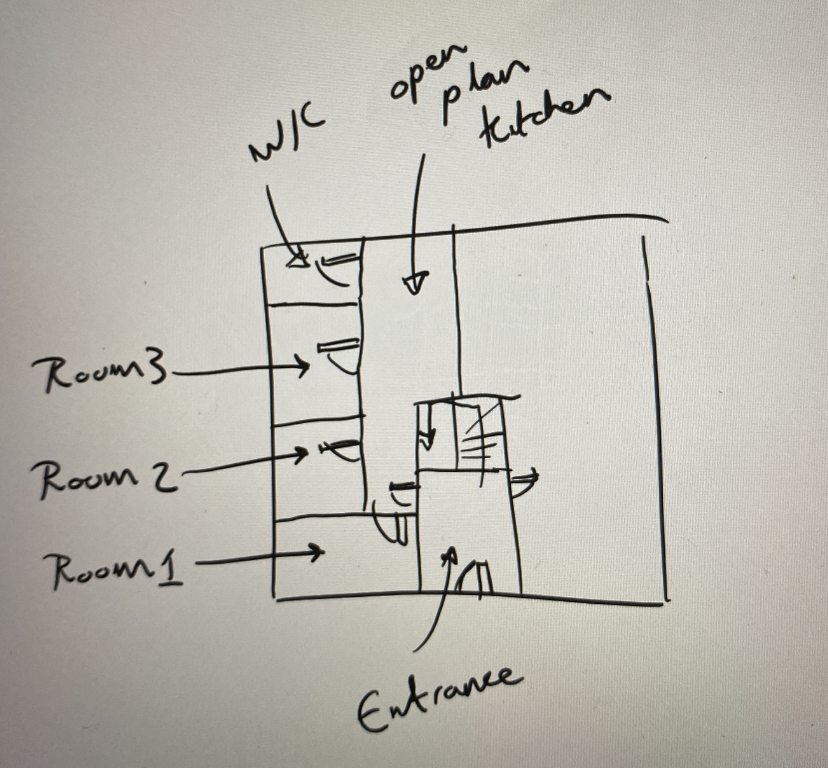 W/C
open
plan
kitchen
Room3
Room 2
Room1
Entrance